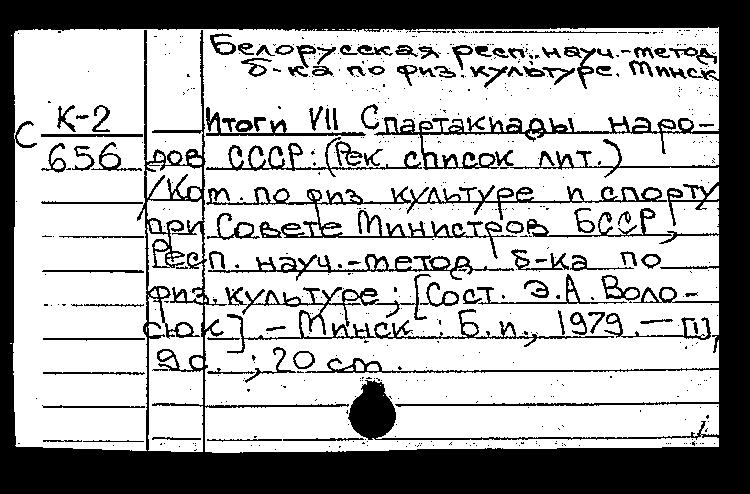 Белорусская респ. науч.-метод.
б-ка по физ. культуре. Минск
С К-2
656
Итоги VII Спартакиады наро-
дов СССР: (Рек. список лит.)
/Ком. по физ. культуре и спорту
при Совете Министров БССР,
Респ. науч.-метод. б-ка по
физ. культуре; [Сост. Э.А. Воло-
сюк]. — Минск : Б.и., 1979. — [1],
9 с. ; 20 см.